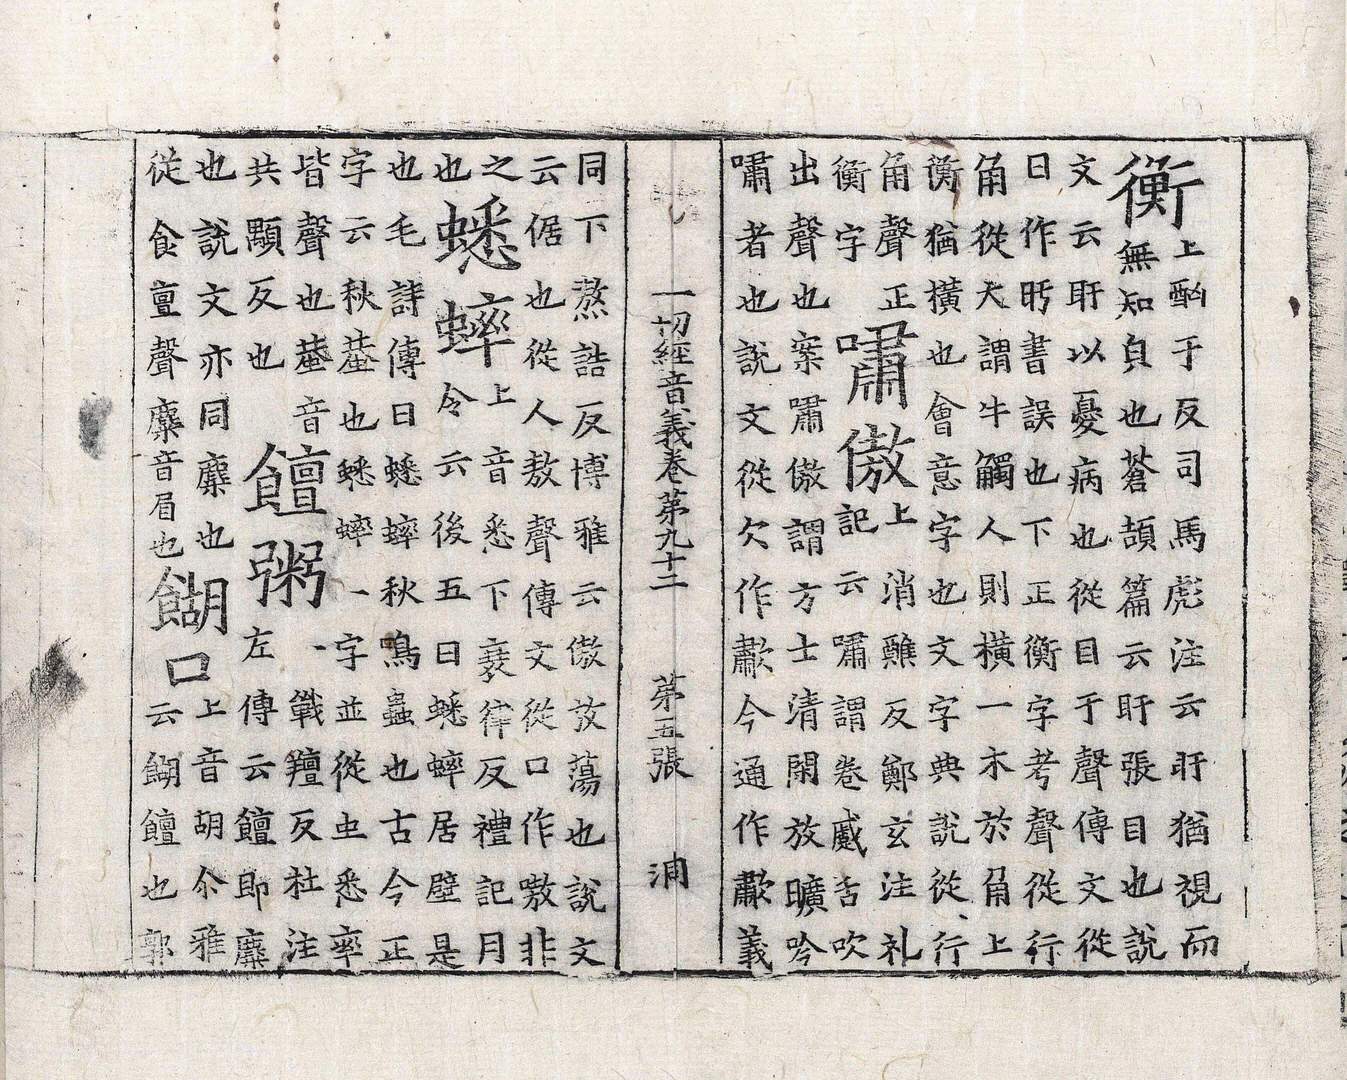 衡
上酌于反司馬彪注云盱猶視而
無知貞也蒼頡篇云盱張目也說
文云盱以憂病也從目于聲傳文從
日作旴書誤也下正衡字考聲從行
角從大謂牛觸人則橫一木於角上
衡猶橫也會意字也文字典說從行
角聲正
衡字
嘯傲
上消雞反鄭玄注礼
記云嘯謂卷蹙舌吹
出聲也案嘯傲謂方士清閑放曠吟
嘯者也說文從欠作歗今通作歗義
一切經音義卷第九十二 第五張 洞
同下熬誥反博雅云傲放蕩也說文
云倨也從人敖聲傳文從口作嗷非
之
也
蟋蟀
上音悉下衰律反禮記月
令云後五日蟋蟀居壁是
也毛詩傳曰蟋蟀秋鳴蟲也古今正
字云秋蛬也蟋蟀二字並從虫悉率
皆聲也蛬音
共顒反也
饘粥
戰羶反杜注
左傳云饘即糜
也說文亦同糜也
從食亶聲糜音眉也
餬口
上音胡尒雅
云餬饘也郭